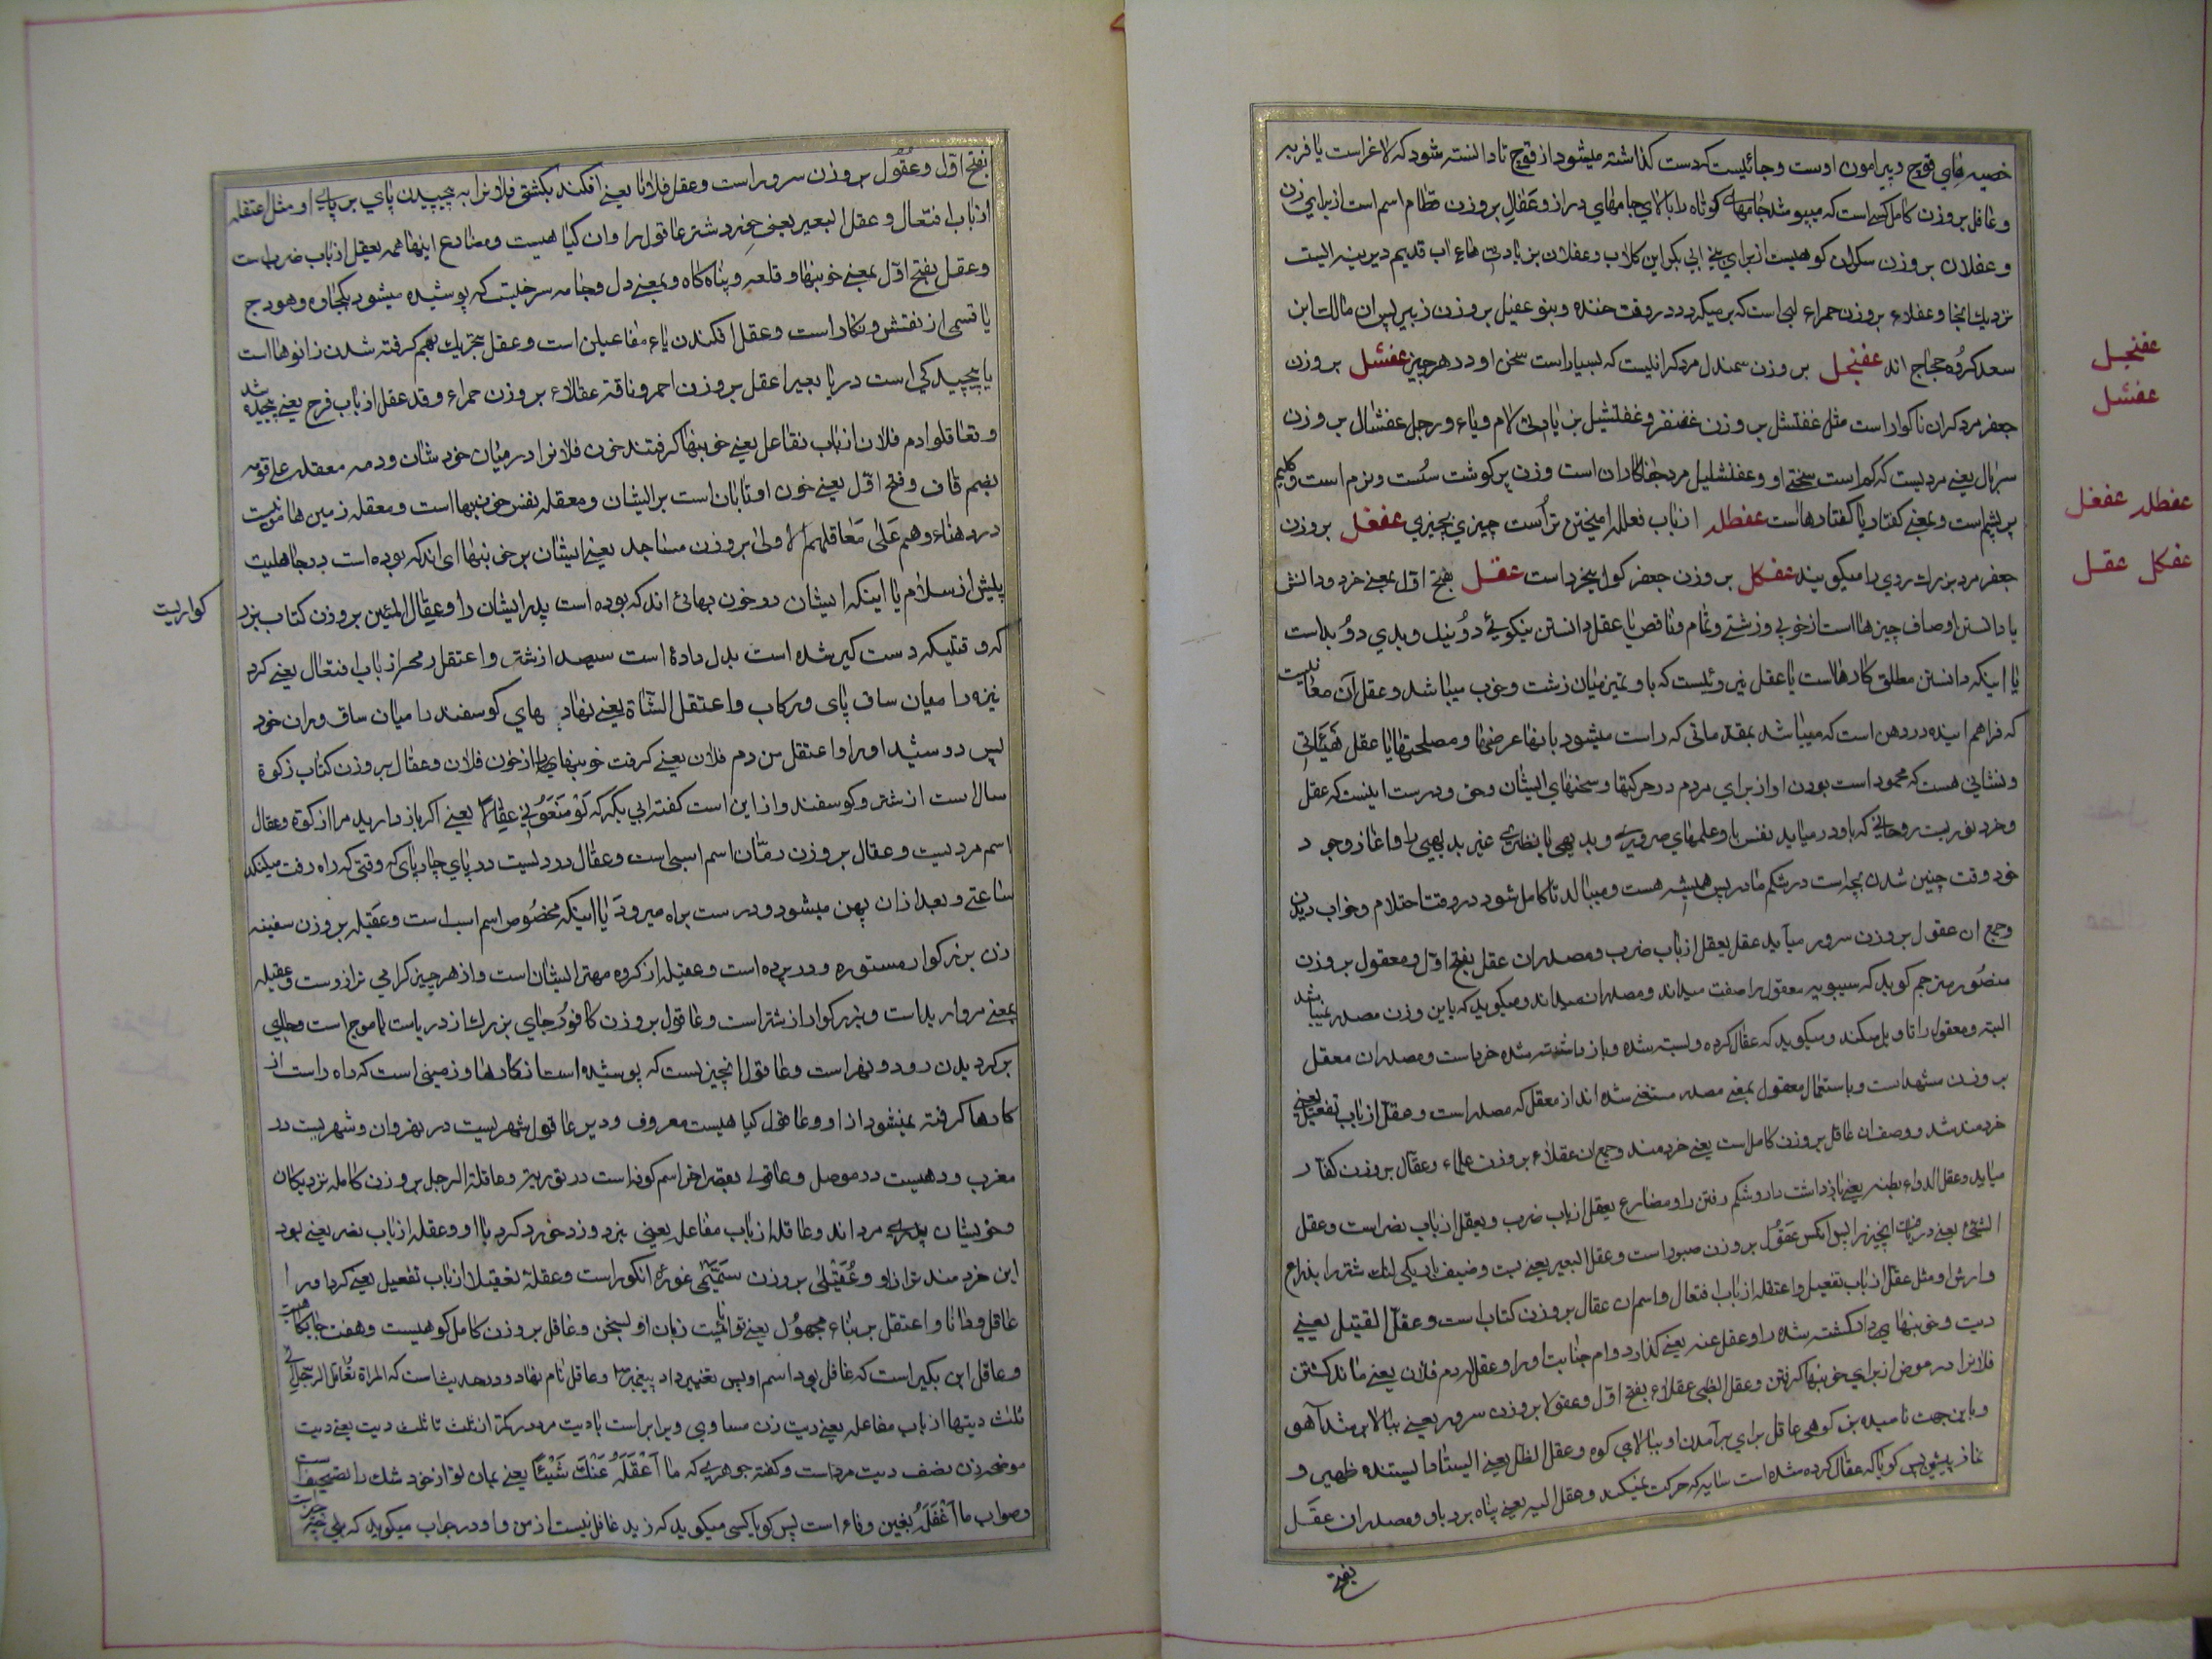 خصیه های قوچ و پیرامون اوست و جائیست که دست گذاشته میشود از قوچ تا دانسته شود که لاغر است یا فربه
و عافل بر وزن کامل کسی است که میپوشد جامهای کوتاه را بالای جامهای دراز و عفال بر وزن قطام اسم است از برای زن
و عفلان بر وزن سکران کوهیست از برای بنی ابی بکر ابن کلاب و عفلان بزیادتی هاء اب قدیم دیرینه ایست
نزدیک انجا و عفلاء بر وزن حمراء لبی است که بر میکردد در وقت خنده و بنو عفیل بر وزن زبیر پسران مالک ابن
سعد کروه حجاج اند عفنجل بر وزن سمندل مرد کرانیست که بسیار است سخن او در هر چیز عفشل بر وزن
جعفر مرد کران ناکوار است مثل عفنشل بر وزن غضنفر و عفلشیل بزیادتی لام و یاء و رجل عفشال بر وزن
سربال یعنی مردیست که کم است سختی او و عفنشلیل مرد جفاکاران است و زن پر کوشت سست و نرم است و کلیم
پر پشم است و بمعنی کفتار یا کفتارهاست عفطله از باب فعلله امیختن تراست چیزی بچیزی عفغل بر وزن
جعفر مرد بزرك روی را میکویند عفکل بر وزن جعفر کول بیخرد است عقل بفتح اول بمعنی خرد و دانش
یا دانستن اوصاف چیزها است از خوبی و زشتی و تمام و ناقص یا عقل دانستن نیکوئی دو نیك و بدی دو بد است
یا اینکه دانستن مطلق کارهاست یا عقل نیروئیست که باو تمیز میان زشت و خوب میباشد و عقل آن معانیست
که فراهم اینده در ذهن است که میباشد بمقدماتی که راست میشود بانها عرضها و مصلحتها یا عقل هیئاتی
و نشانی هست که محمود است بودن او از برای مردم در حرکتها و سخنهای ایشان و حق و درست اینست که عقل
و خرد نوریست روحانی که باو در میابد نفس او علمهای ضروری و بدیهی یا نظری غیر بدیهی را و اغاز وجود
خود وقت چنین شدن بچه است در شکم مادر پس همیشه هست و میبالد تا کامل شود در وقت احتلام و خواب دیدن
و جمع ان عقول بر وزن سرور میآید عقل یعقل از باب ضرب و مصدران عقل بفتح اول و معقول بر وزن
منصور مترجم کوید که سیبویه معقول را صفت میداند و مصدران نمیداند و میکوید که باین وزن مصدر نمیباشد
البته و معقول را تاویل میکند و میکوید که عقال کرده و بسته شده و باز داشته شده خرد است و مصدران معقل
بر وزن مشهد است و باستعمال معقول بمعنی مصدر مستغنی شده اند از معقل که مصدر است و عقل از باب تفعیل یعنی
خردمند شد و وصف ان عاقل بر وزن کامل است یعنی خردمند و جمع ان عقلاء بر وزن علماء و عقال بر وزن کفار
میاید و عقل الدواء بطنه یعنی باز داشت دارو شکم رفتن را و مضارع یعقل از باب ضرب و یعقل از باب نصر است و عقل
الشئ یعنی دریافت انچیز را پس انکس عقول بر وزن صبور است و عقل البعیر یعنی بست وضیف یکی لنك شتر را بذراع
وارش او مثل عقل از باب تفعیل و اعتقله از باب افتعال و اسم ان عقال بر وزن کتاب است و عقل القتیل یعنی
دیت و خونبهای داد کشته شده را و عقل عنه یعنی کذارد وام جنایت او را و عقل له دم فلان یعنی ماند کشتن
فلانرا در عوض از برای خونبها کرفتن و عقل الظبی عقلاء بفتح اول و عقولا بر وزن سرور یعنی ببالا بر شد آهو
و باین جهت نامیده بز کوهی عاقل برای برآمدن او ببالای کوه و عقل الظل یعنی ایستاد ایستنده ظهیر و
نماز پیشین پس کویا که عقال کرده شده است سایه که حرکت نمیکند و عقل الیه یعنی پناه برد باو و مصدران عقل
بفتح
عفنجل
عفشل
عفطله عفغل
عفکل عقل
بفتح اول و عقول بر وزن سرور است و عقل فلانا یعنی افکند بکشتی فلانرا به پیچیدن پای بر پای او مثل اعتقله
از باب افتعال و عقل البعیر یعنی خورد شتر عاقول را و ان کیاهیست و مضارع اینها همه یعقل از باب ضرب است
و عقل بفتح اول بمعنی خونبها و قلعه و پناه کاه و بمعنی دل و جامه سرخیست که پوشیده میشود بکجاوه و هودج
یا قسمی از نقش و نکار است و عقل افکندن یاء مفاعیلن است و عقل بتحریك بهم کرفته شدن زانوها است
یا پیچیدکی است در پا بعیر اعقل بر وزن احمر و ناقة عقلاء بر وزن حمراء و قد عقل از باب فرح یعنی پیچیده شد
و تعاقلوا دم فلان از باب تفاعل یعنی خونبها کرفتند خون فلانرا در میان خودشان و دمه معقله علی قومه
بضم قاف و فتح اول یعنی خون او تاوان است بر ایشان و معقله نفس خونبها است و معقله زمین هامونیست
در دهناء و هم علی معاقلهم الاولی بر وزن مساجد یعنی ایشان بر خونبهاای اند که بوده است در جاهلیت
پیش از سلام یا اینکه ایشان در خون بهائی اند که بوده است پدر ایشان را و عقال المئین بر وزن کتاب بزرد
کواریست
که وقتیکه دست کیر شده است بدل داده است سیصد از شتر و اعتقل رمحه از باب افتعال یعنی کرد
نیزه را میان ساق پای و رکاب و اعتقل الشاة یعنی نهاد پاهای کوسفند را میان ساق و ران خود
پس دوشید او را و اعتقل من دم فلان یعنی کرفت خونبهای را از خون فلان و عقال بر وزن کتاب زکوة
سال است از شتر و کوسفند و از این است کفته ابی بکر که لو منعونی عقالا یعنی اکر باز دارید مرا از زکوة و عقال
اسم مردیست و عقال بر وزن رمان اسم اسبی است و عقال دردیست در پای چارپای که وقتی که راه رفت میلنکد
ساعتی و بعد از ان پهن میشود و درست براه میرود یا اینکه مخصوص اسم اسب است و عقیله بر وزن سفینه
زن بزرکوار مستوره و در پرده است و عقیله از کروه مهتر ایشان است و از هر چیز کرامی تر از وست و عقیله
بمعنی مروارید است و بزرکوار از شتر است و عاقول بر وزن کافور جای بزرك از دریاست یا موج است و جای
بر کردیدن رود و نهر است و عاقول انچیزیست که پوشیده است از کارها و زمینی است که راه راست از
کارها کرفته نمیشود از او و عاقول کیاهیست معروف و دیر عاقول شهریست در نهروان و شهریست در
مغرب و دهیست در موصل و عاقولی بقصر اخر اسم کوفه است در توریه و عاقلة الرجل بر وزن کامله نزدیکان
و خویشان پدری مرد اند و عاقله از باب مفاعله یعنی نبرد و زد خورد کرد با او و عقله از باب نصر یعنی بود
این خردمند تر از او و عقیلی بر وزن سمیهی غوره انکور است و عقله تعقیلا از باب تفعیل یعنی کرد او را
عاقل و دانا و اعتقل بر بناء مجهول یعنی توانست زبان او بسخن و عاقل بر وزن کامل کوهیست و هفت جایکاهست
و عاقل ابن بکیر است که غافل بود اسم او پس تغییر داد پیغمبر و عاقل نام نهاد و در حدیث است که المراة تعاقل الرجل الی
ثلث دیتها از باب مفاعله یعنی دیت زن مساوی و برابر است با دیت مرد کمتر از ثلث تا ثلث دیت یعنی دیت
موضحه زن نصف دیت مرد است و کفته جوهری که ما اعقله عنك شیئا یعنی بمان تو از خود شك را تصحیف است
و صواب ما اغفله بغین و فاء است پس کویا کسی میکوید که زید غافل نیست از من و او در جواب میکوید که بلی